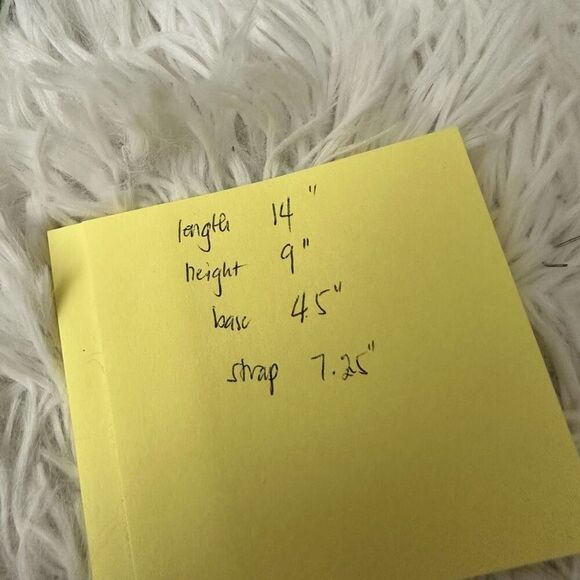 length 14"
height 9"
base 4.5"
strap 7.25"